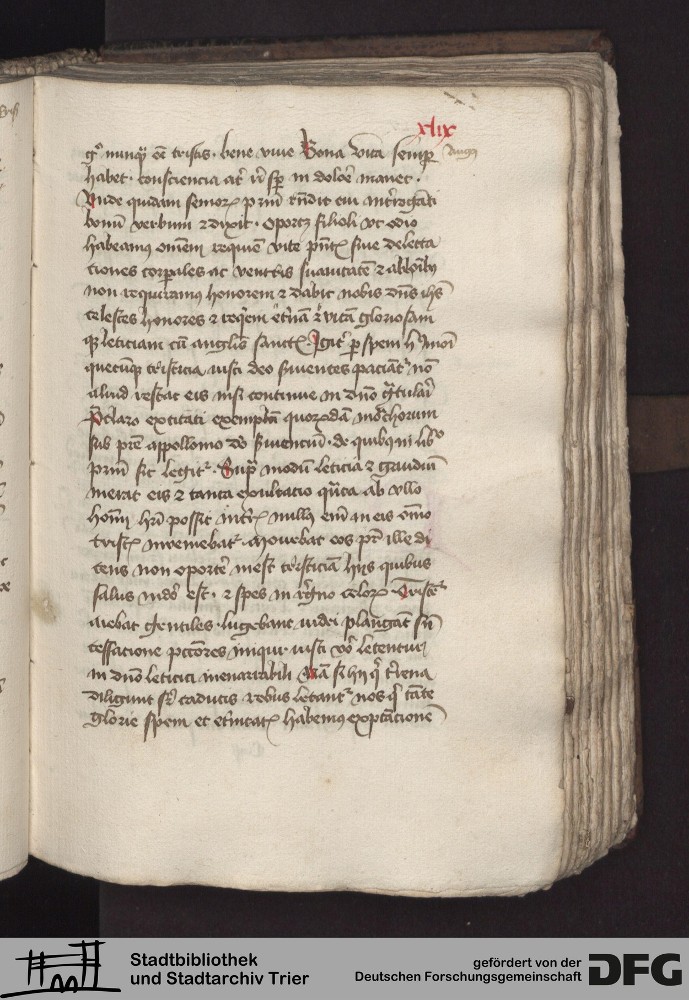 xlix
gº nunq̃ eē tristis · bene viue Bona vita semp Augus
habet · consciencia at̃ r̃ sp̱ in dolore manet ·
Vnde quidam senior p̱ rñdit cui int̃rogãti
bonū verbum ⁊ dixit · oportz filioli vt odio
habeamus om̃em requiem vite p̃nt siue delecta
ciones corp̱ales ac ventris suauitatē ⁊ ab hõibꝰ
non requiramus honorem ⁊ dabit nobis dn̄s ih̄s
celestes honores ⁊ req̃em et̃nã ⁊ vitã gloriosam
qꝫ leticiam cū anglis sanct Igit̃ p̱ spem
quecūqꝫ tristicia iusti deo siuentes paciãt̃ nō
aliud restat eis nisi continue in dn̄o g̃tulari
P̃claro excitati exemplã quorūdã mōchorum
sub p̃re appollonio de quibus in libº
primº sic legit̃ · Sup̱ modū leticia ⁊ gaudiū
inerat eis ⁊ tanta exultacio q̃nta ab vllo
homī hr̃i possit in terris nullꝰ em̃ in eis om̃ino
trist inueniebat̃ · Mouebat eos p̃r ille di
cens non oportet inesse tristiciã hijs quibus
salus in dº est · ⁊ spes in r̃gno celor Triste
aiebat gentiles · lugebant iudei plangãt sn̄
cessacione pctõres iniqui · iusti vº letentur
in dn̄o leticia inenarrabili Nam si hij q̃ t̃rena
diligunt sr̃ caducis rebus letant̃ nos q̃ tãte
glorie spem et et̃nitat habemus exptacionē
Stadtbibliothek
und Stadtarchiv Trier
gefördert von der
Deutschen Forschungsgemeinschaft
DFG